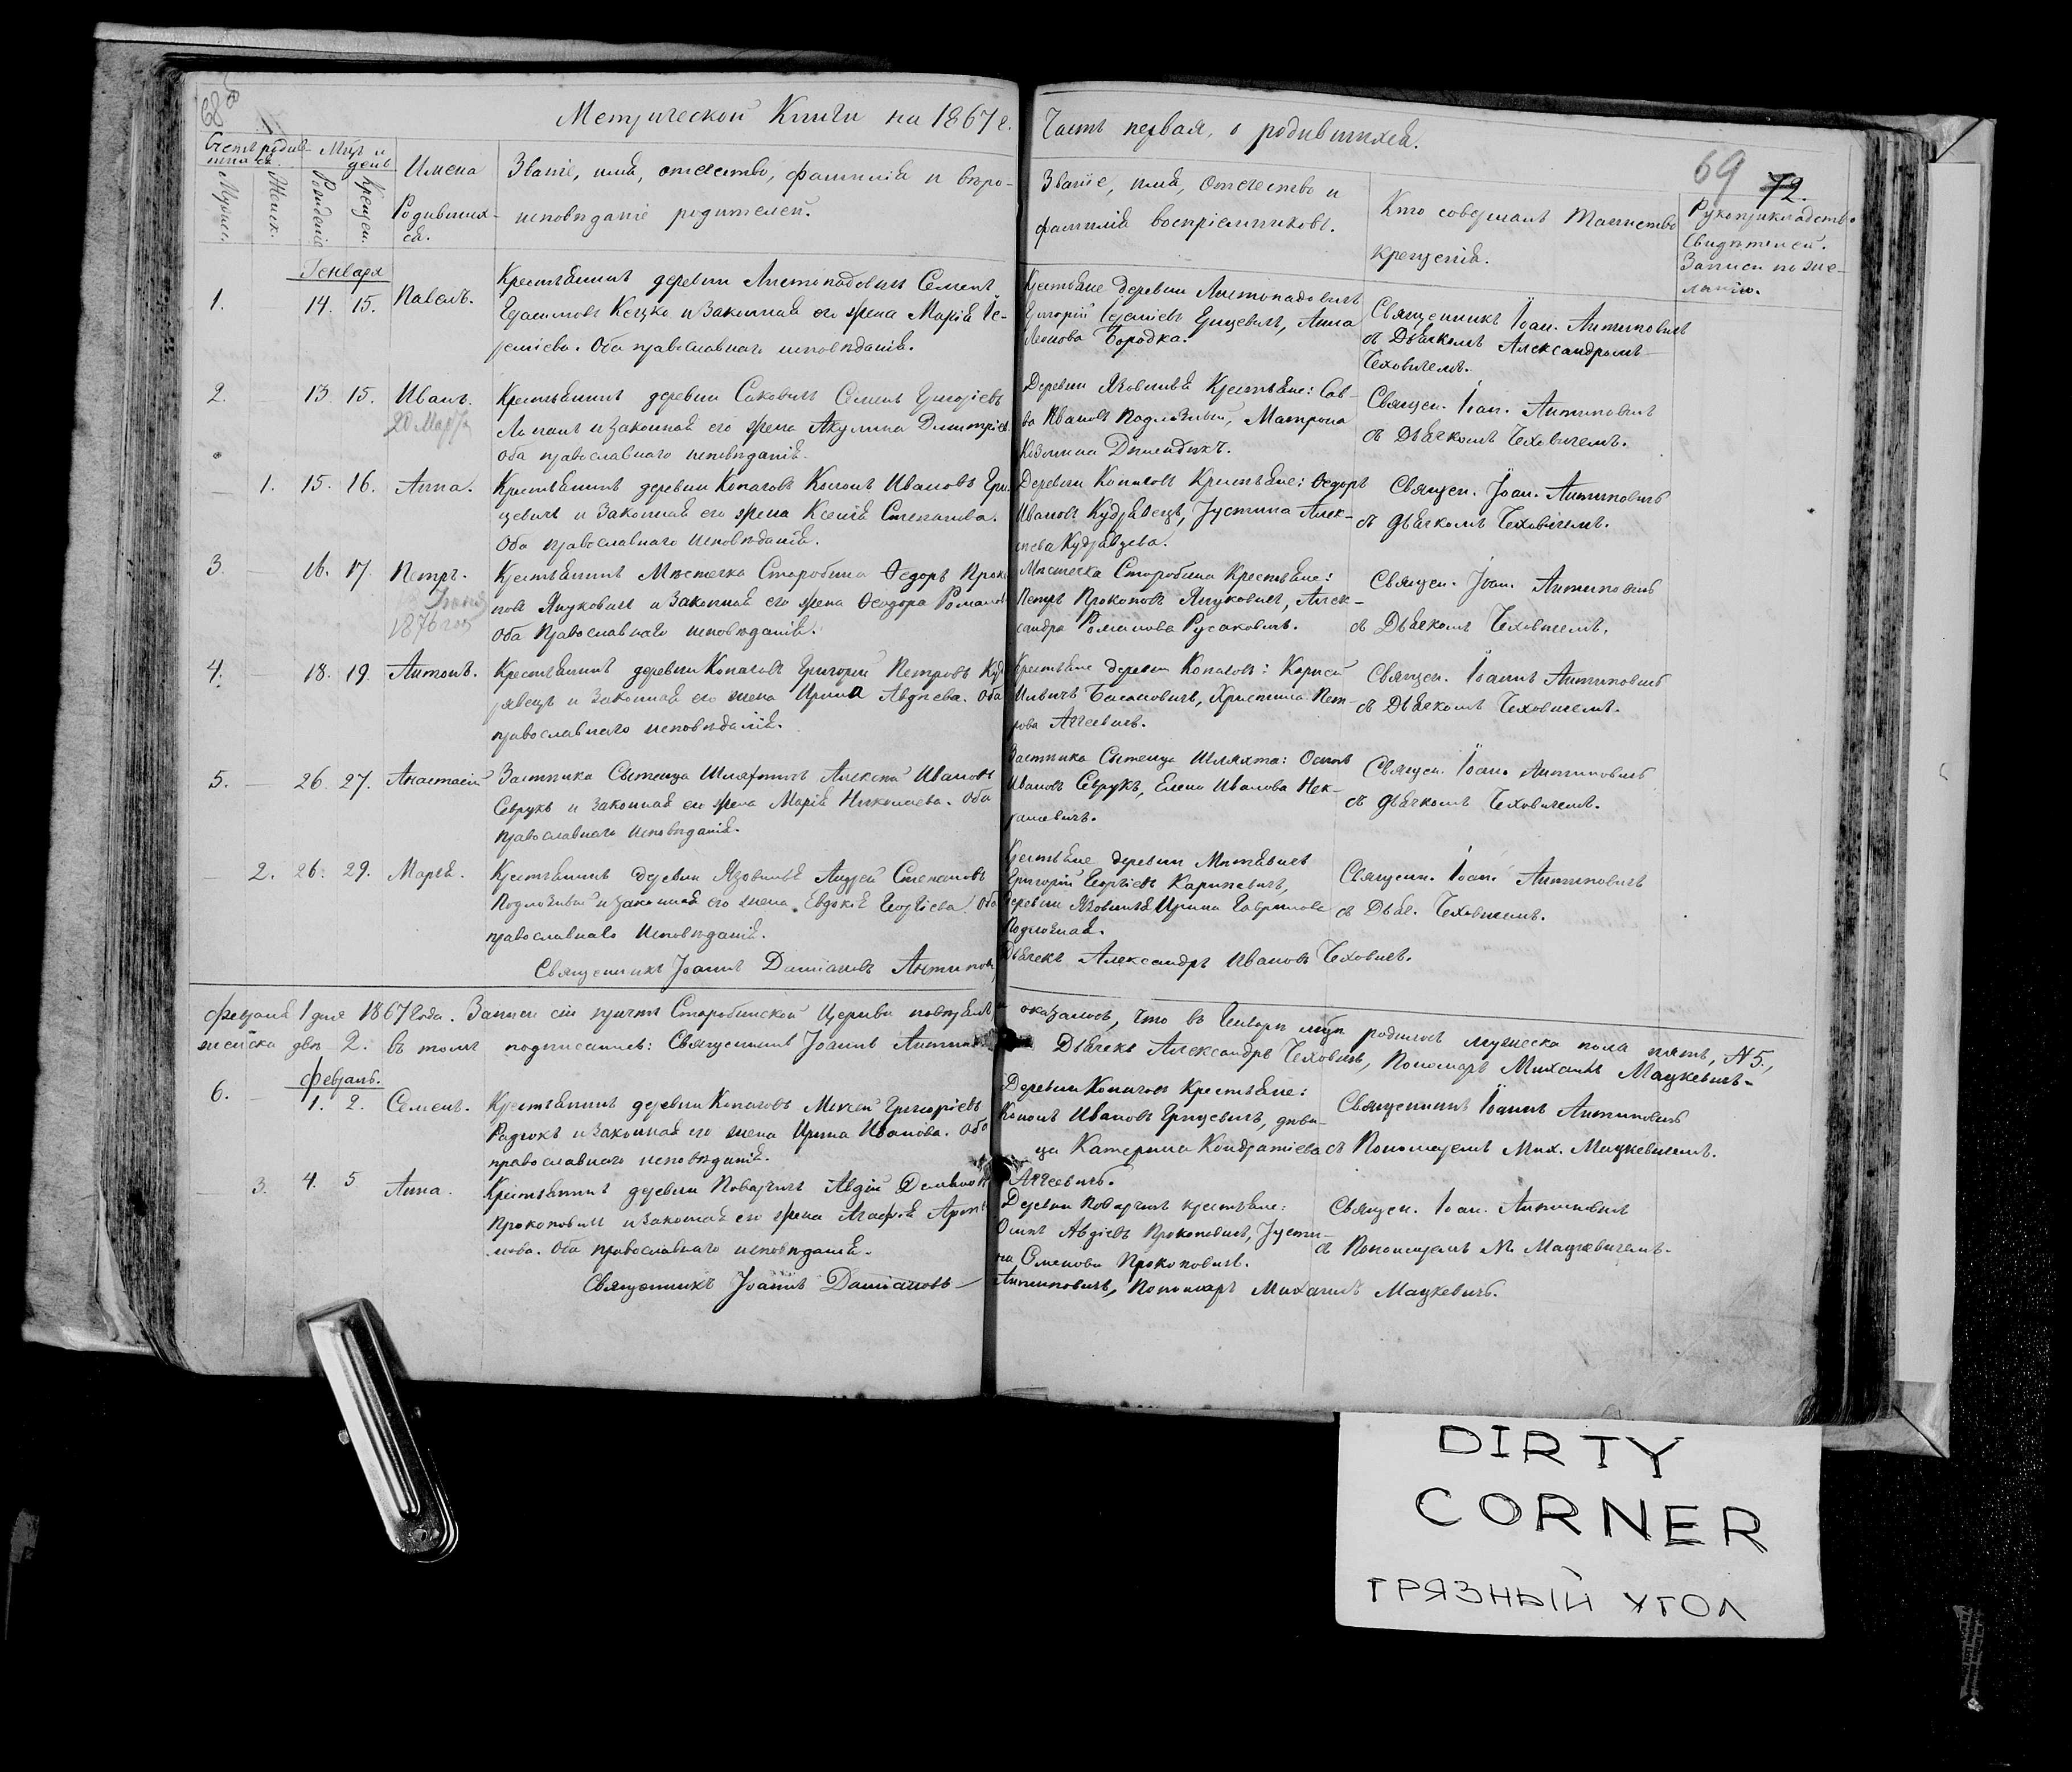 68
Метрической Книги на 1867 г.
Часть первая, о родившихся.
69 72.
Счетъ родив-
шихся.
Мѣц. и
день
Мужск.
Женск.
Рожденія
Крещен.
Имена
Родивших-
ся.
Званіе, имя, отчество, фамилія и вѣро-
исповѣданіе родителей.
Званіе, имя, Отчество и
фамилія воспріемниковъ.
Кто совершалъ таинство
крещенія.
Рукоприкладство
Свидѣтелей.
Записи по же-
ланію.
Генваря
1. 14. 15. Павелъ.
Крестьянинъ деревни Листопадовичъ Семенъ
Герасимовъ Кецко и законная его жена Марія
Оба православнаго исповѣданія.
Крестьяне деревни Листопадовичъ
Григорій Грицевичъ, Анна
Леонова Бородка.
Священникъ Іоан. Антиповичъ
съ Дьячкомъ Александромъ
Чеховичемъ.
2. 13. 15. Иванъ.
20 Марта
Крестьянинъ деревни Саковичъ Семенъ Григорьевъ
и законная его жена Акулина Дмитріев.
Оба православнаго исповѣданія.
Деревни Язовиня Крестьяне: Сав-
ва Ивановъ Подлозный, Матрона
Священ. Іоан. Антиповичъ
съ Дьячкомъ Чеховичемъ.
1. 15. 16. Анна.
Крестьянинъ деревни Копачовъ Кононъ Ивановъ Гри-
цевичъ и Законная его жена Ксенія Степанова.
Оба православнаго исповѣданія.
Деревни Копачовъ Крестьяне: Ѳедоръ
Ивановъ Кудрявецъ, Іустина Алек-
сѣева Кудрявцева.
Священ. Іоан. Антиповичъ
съ дьячкомъ Чеховичемъ.
3. 16. 17. Петръ.
1876 год
Крестьянинъ Мѣстечка Старобина Ѳедоръ Проко
повъ Януковичъ и Законная его жена Ѳеодора Романов
Оба Православнаго исповѣданія.
Мѣстечка Старобина Крестьяне:
Петръ Прокоповъ Януковичъ, Алек-
сандра Романова Русаковичъ.
Священ. Іоан. Антиповичъ
съ Дьячкомъ Чеховичемъ.
4. 18. 19. Антонъ.
Крестьянинъ деревни Копачовъ Григорій Петровъ Куд
рявецъ и законная его жена Ирина Авдѣева. Оба
православнаго исповѣданія.
Крестьяне деревни Копачовъ: Корней
Христина Пет-
рова Агѣевичъ.
Священ. Іоаннъ Антиповичъ
съ Дьячкомъ Чеховичемъ.
5. 26. 27. Анастасій
Застѣнка Сытенца Шляхтичъ Алексѣй Ивановъ
Севрукъ и законная его жена Марія Николаева. Оба
православнаго исповѣданія.
Застѣнка Сытенца Шляхта: Осипъ
Ивановъ Севрукъ, Елена Иванова Нек-
рашевичъ.
Священ. Іоан. Антиповичъ
съ дьячкомъ Чеховичемъ.
2. 26. 29. Марья.
Крестьянинъ деревни Язовиня Андрей Степановъ
Подлозный и законная его жена Евдокія Георгіева. Оба
православнаго Исповѣданія.
Крестьяне деревни Метявичъ
Григорій Георгіевъ Карпиевичъ,
деревни Язовиня Ирина Гаврилова
Подлозная.
Священн. Іоан. Антиповичъ
съ Дьяч. Чеховичемъ.
Священникъ Іоаннъ Даміановъ Антипов
Дьячекъ Александръ Ивановъ Чеховичъ.
Февраля 1 дня 1867 года. Записи сіи причтъ Старобинской Церкви повѣрялъ и оказалось, что въ Генварѣ мѣц. родилось мужеска пола пять, N 5,
женска двѣ 2. въ томъ подписались: Священникъ Іоаннъ Антипов Дьячекъ Александръ Чеховичъ, Пономарь Михаилъ Мацкевичъ.
Февраль.
6. 1. 2. Семенъ.
Крестьянинъ деревни Копачовъ Мокей Григорьевъ
Радюкъ и Законная его жена Ирина Иванова. Оба
православнаго исповѣданія.
Деревни Копачовъ Крестьяне:
Кононъ Ивановъ Грицевичъ, дѣви-
ца Катерина Кондратіева
Агѣевичъ.
Священникъ Іоаннъ Антиповичъ
съ Пономаремъ Мих. Мацкевичемъ.
3. 4. 5 Анна.
Крестьянинъ деревни Поварчицъ Авдій Демьянов
Прокоповичъ и законная его жена Агафія
Оба православнаго исповѣданія.
Деревни Поварчицъ крестьяне:
Осипъ Авдіевъ Прокоповичъ, Іусти-
на Семенова Прокоповичъ.
Священ. Іоан. Антиповичъ
съ Пономаремъ М. Мацкевичемъ.
Священникъ Іоаннъ Даміановъ Антиповичъ, Пономарь Михаилъ Мацкевичъ.
DIRTY
CORNER
ГРЯЗНЫЙ УГОЛ